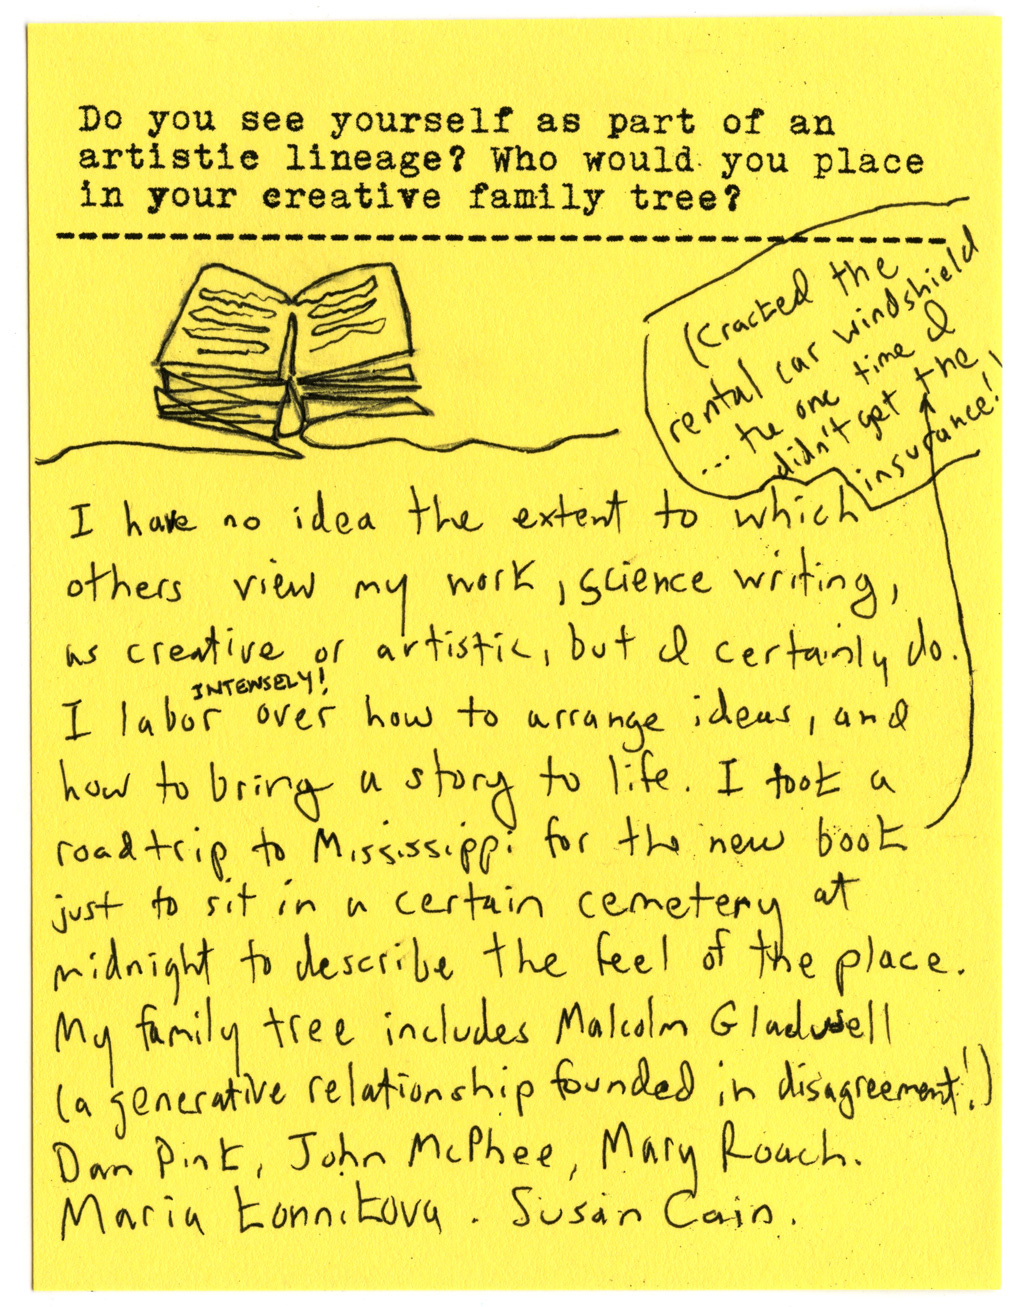 Do you see yourself as part of an
artistic lineage? Who would you place
in your creative family tree?
(cracked the
rental car windshield
... the one time I
didn't get the
insurance!)
I have no idea the extent to which
others view my work, science writing,
as creative or artistic, but I certainly do.
INTENSELY!
I labor over how to arrange ideas, and
how to bring a story to life. I took a
roadtrip to Mississippi for the new book
just to sit in a certain cemetery at
midnight to describe the feel of the place.
My family tree includes Malcolm Gladwell
(a generative relationship founded in disagreement!)
Dan Pink, John McPhee, Mary Roach.
Maria Konnikova. Susan Cain.